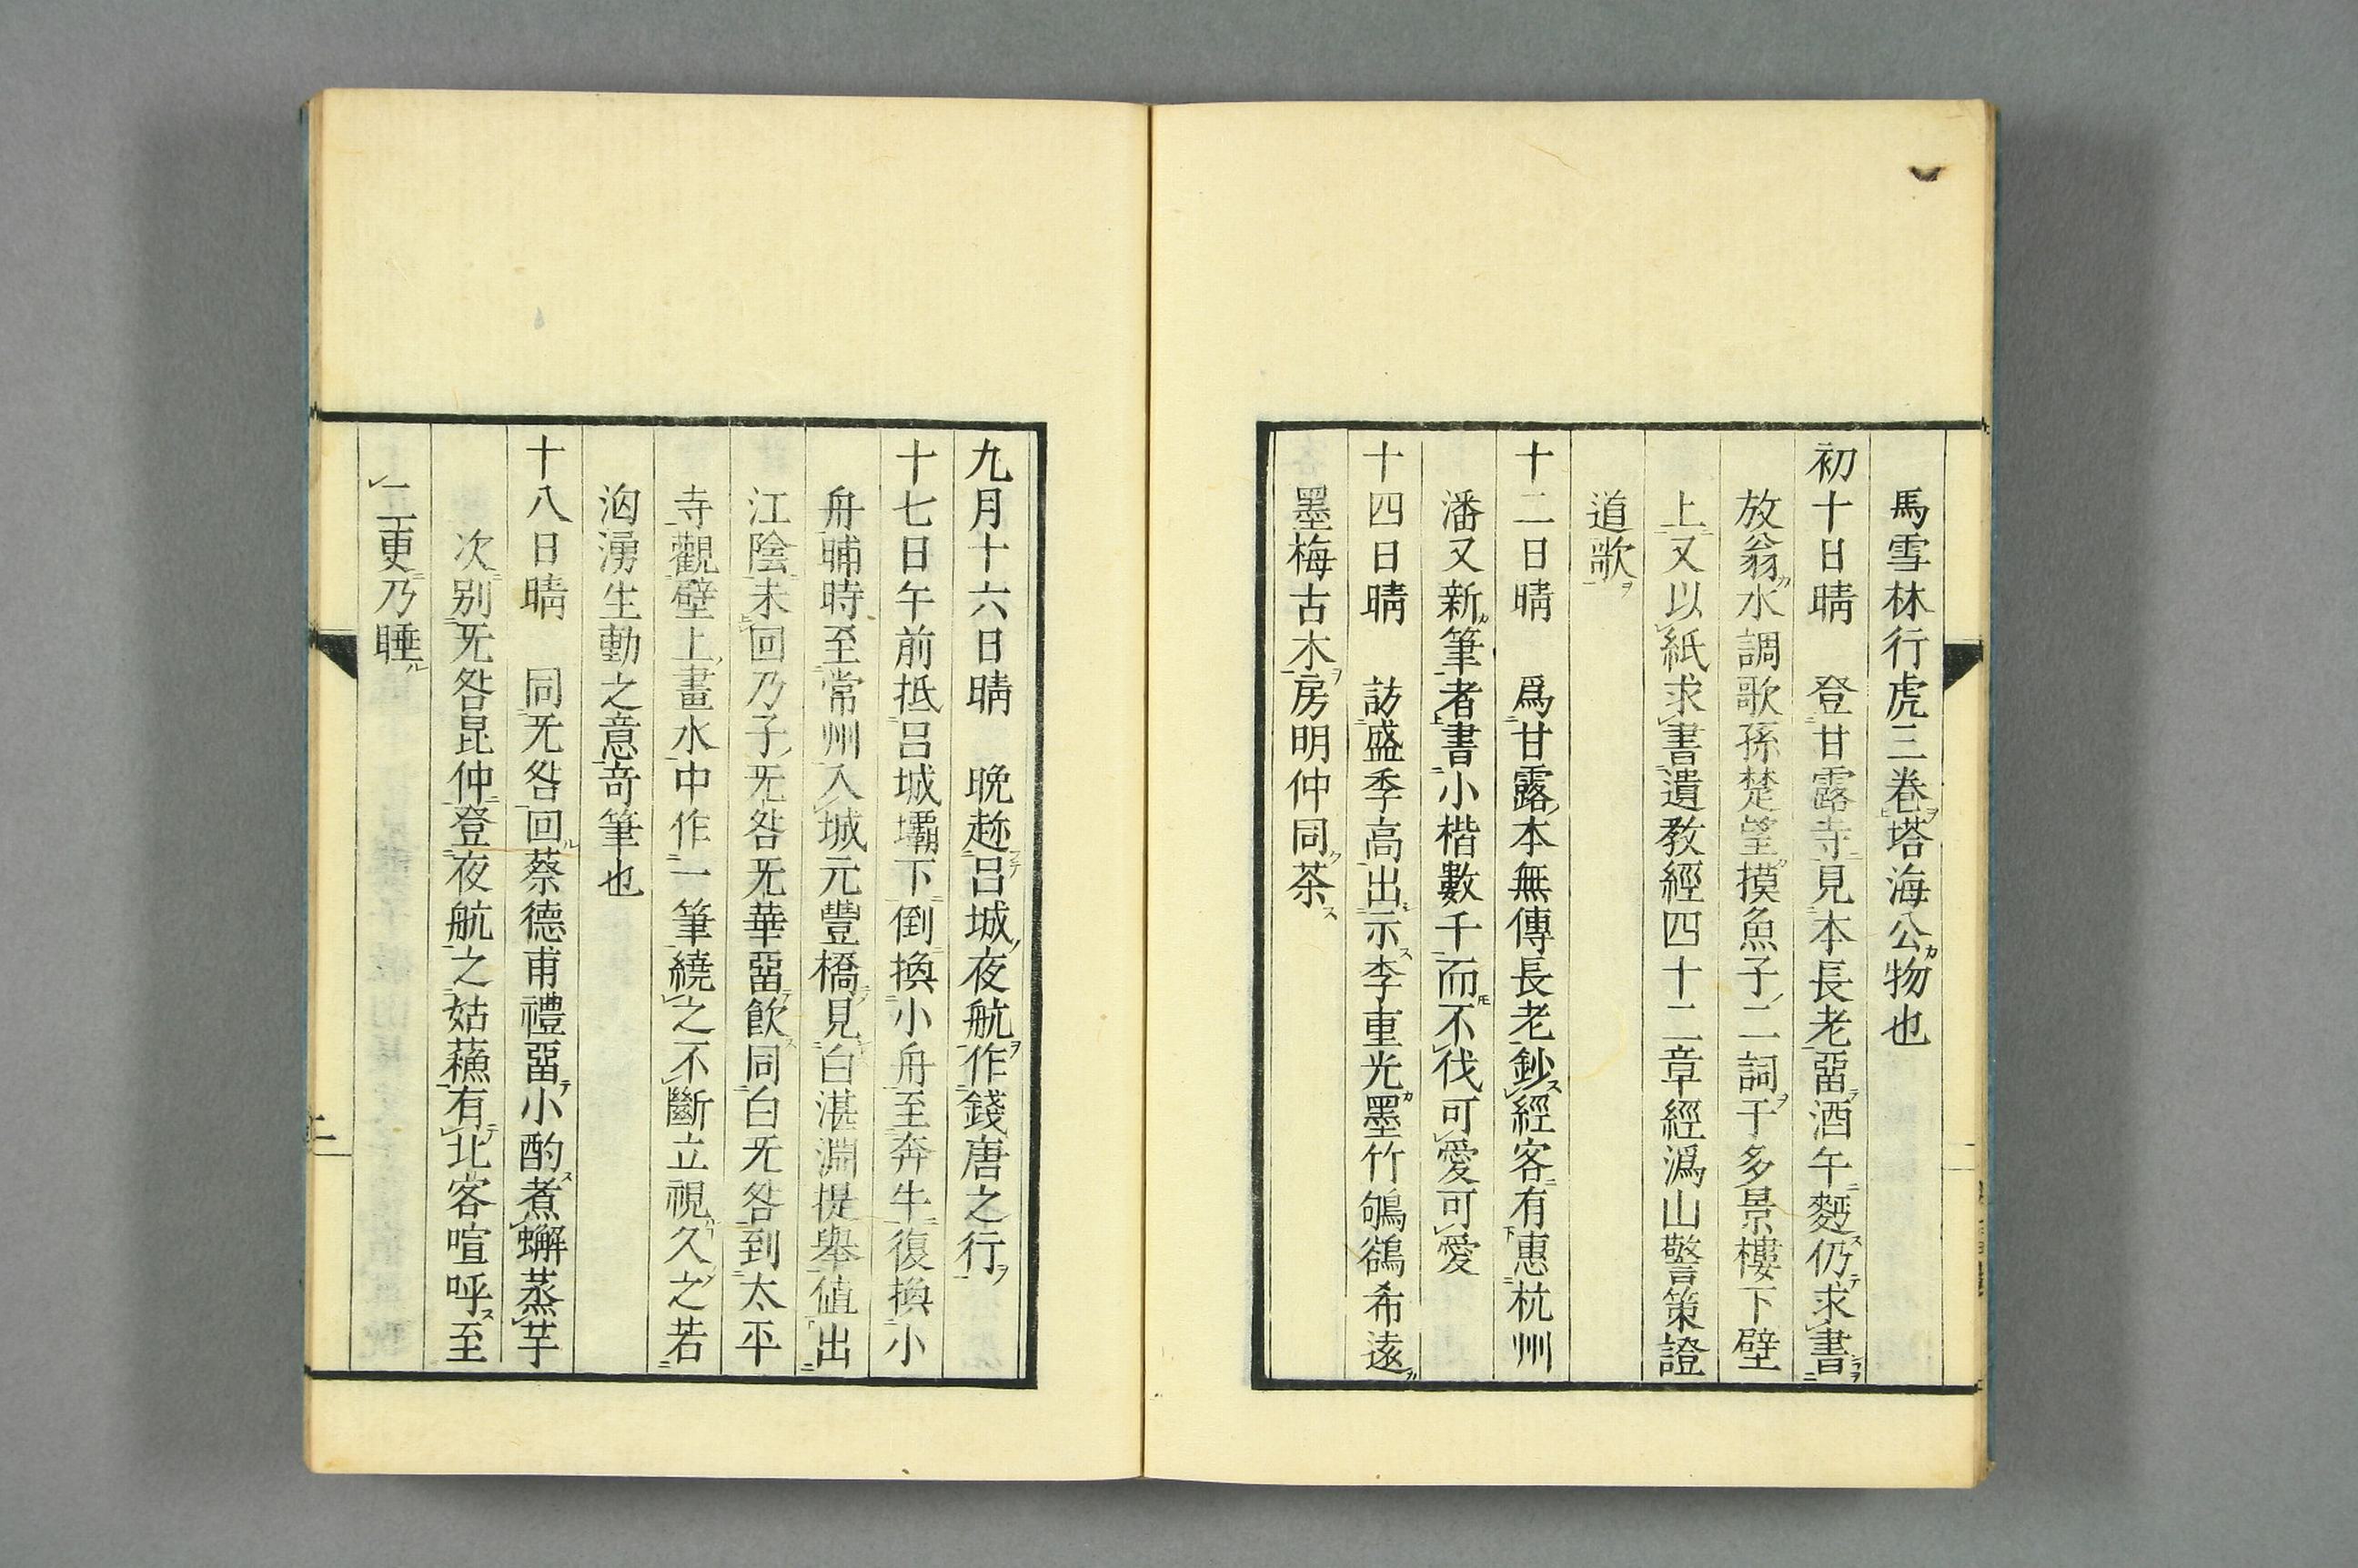 馬雪林行虎三卷塔海公物也
初十日晴　登甘露寺見本長老畱酒午麪仍求書
放翁水調歌孫楚望摸魚子二詞于多景樓下壁
上又以紙求書遺教經四十二章經潙山警策證
道歌
十二日晴　爲甘露本無傳長老鈔經客有惠杭州
潘又新筆者書小楷數千而不伐可愛可愛
十四日晴　訪盛季高出示李重光墨竹鴝鵒希遠
墨梅古木房明仲同茶
九月十六日晴　晩趂呂城夜航作錢唐之行
十七日午前抵呂城壩下倒換小舟至奔牛復換小
舟晡時至常州入城元豐橋見白湛淵提舉値出
江陰未回乃子旡咎旡華畱飮同白旡咎到太平
寺觀壁上畫水中作一筆繞之不斷立視久之若
洶湧生動之意奇筆也
十八日晴　同旡咎回蔡德甫禮畱小酌煮蠏蒸芋
次别旡咎昆仲登夜航之姑蘓有北客喧呼至
二更乃睡